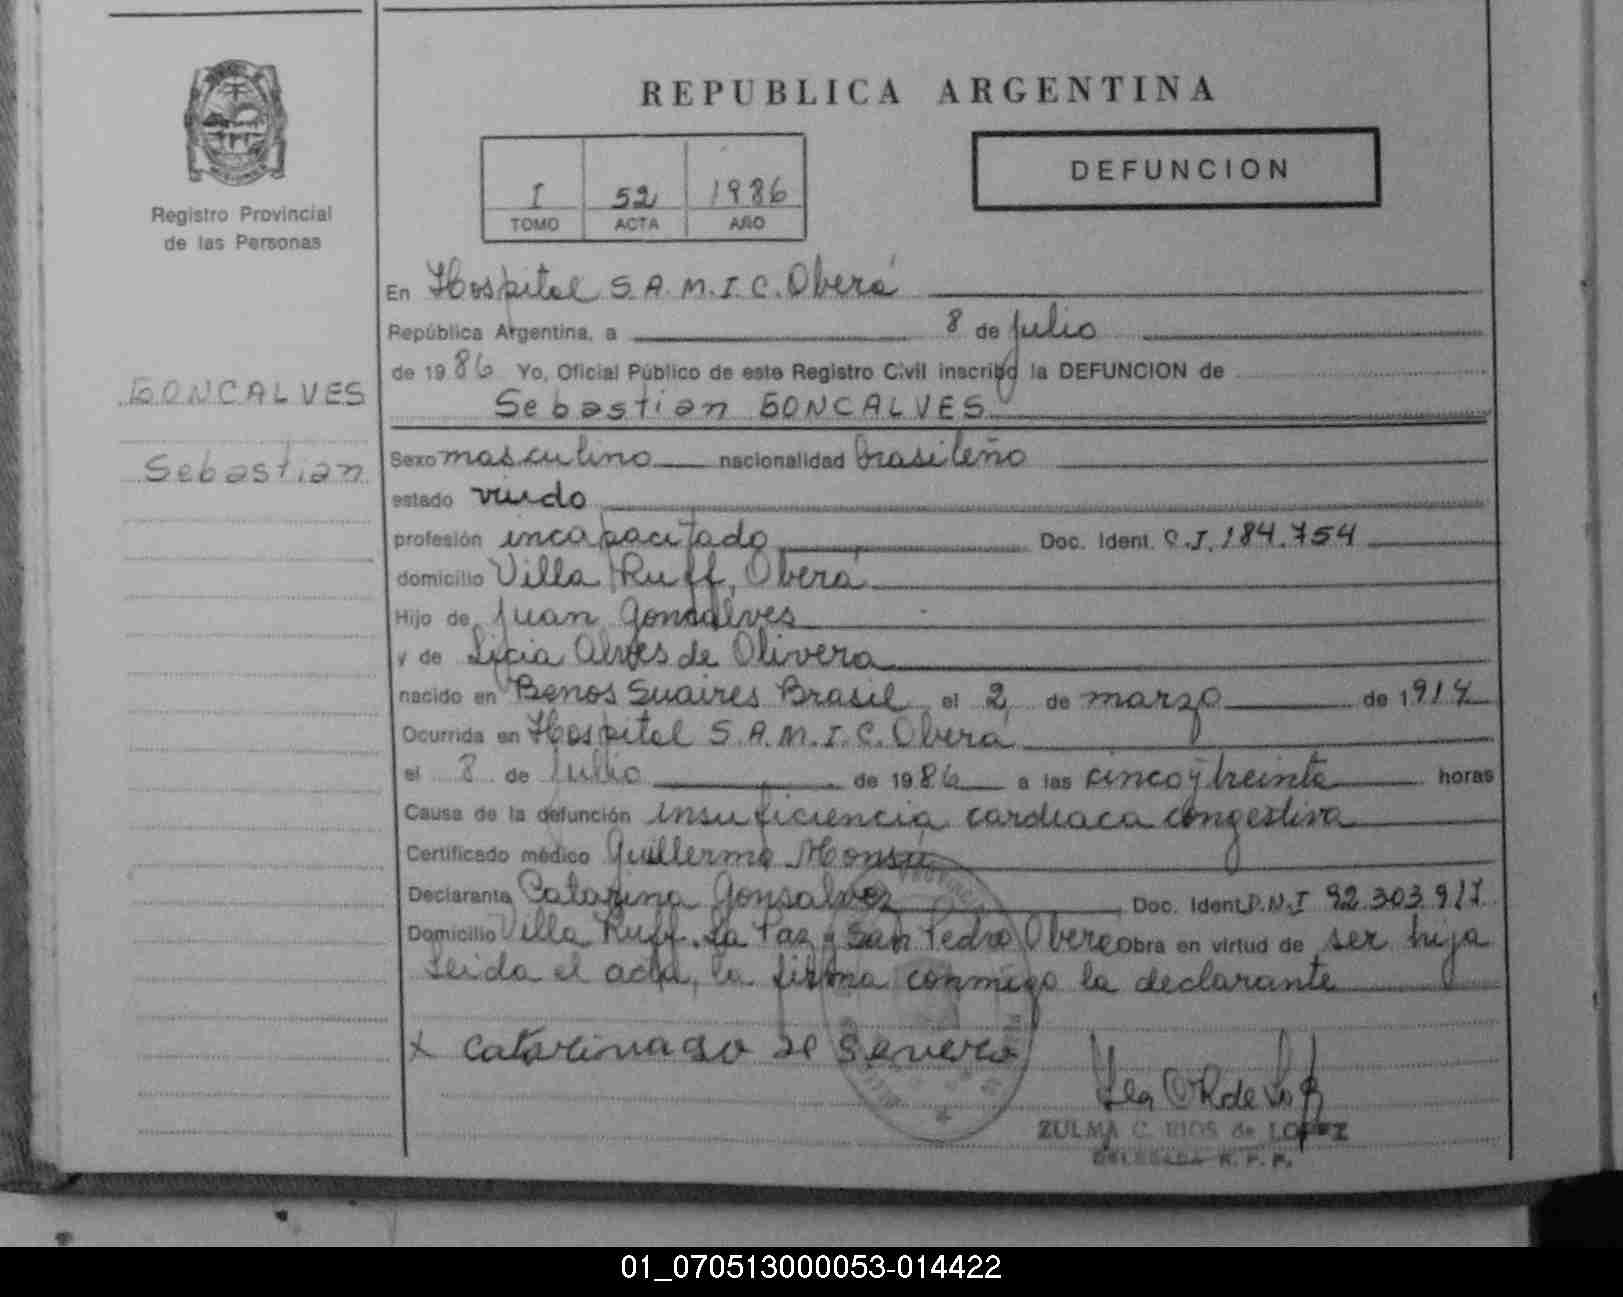 REPUBLICA ARGENTINA
Registro Provincial
de las Personas
I 52 1986
TOMO ACTA AÑO
DEFUNCION
GONCALVES
Sebastian
En Hospital S.A.M.I.C. Oberá
República Argentina, a 8 de julio
de 1986 Yo, Oficial Público de este Registro Civil inscribo la DEFUNCION de
Sebastian GONCALVES
Sexo masculino nacionalidad brasileño
estado viudo
profesión incapacitado Doc. Ident. C.I. 184.754
domicilio Villa Ruff, Oberá
Hijo de Juan Gonsalves
y de Licia Alves de Olivera
nacido en Benos Suaires Brasil el 2 de marzo de 1917
Ocurrida en Hospital S.A.M.I.C. Oberá
el 8 de Julio de 1986 a las cinco y treinta horas
Causa de la defunción insuficiencia cardiaca congestiva
Certificado médico Guillermo
Declarante Catarina Gonsalvez Doc. Ident D.N.I 92.303.917
Domicilio Villa Ruff. La Paz y San Pedro Obera obra en virtud de ser hija
Leida el acta, la firma conmigo la declarante
x Catarina go de
ZULMA C. RIOS de LOPEZ
DELEGADA R. P. P.
01_070513000053-014422